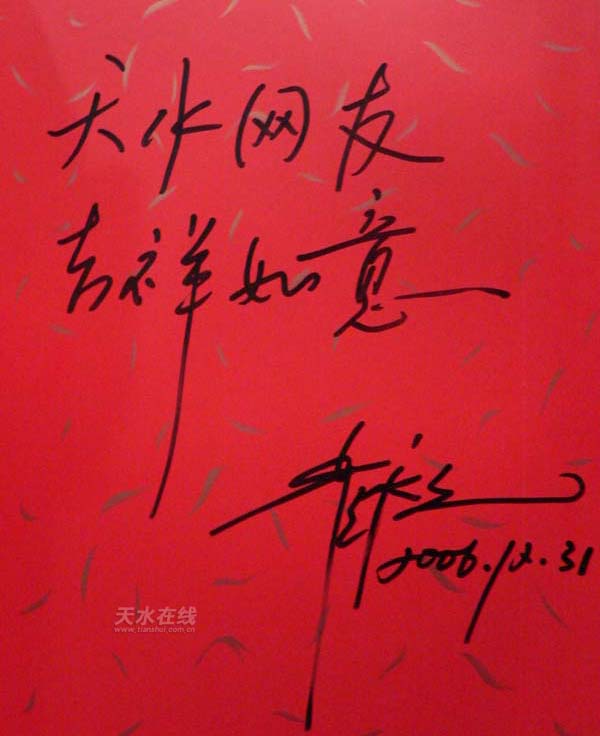 天水网友
吉祥如意
2006.12.31
天水在线
www.tianshui.com.cn